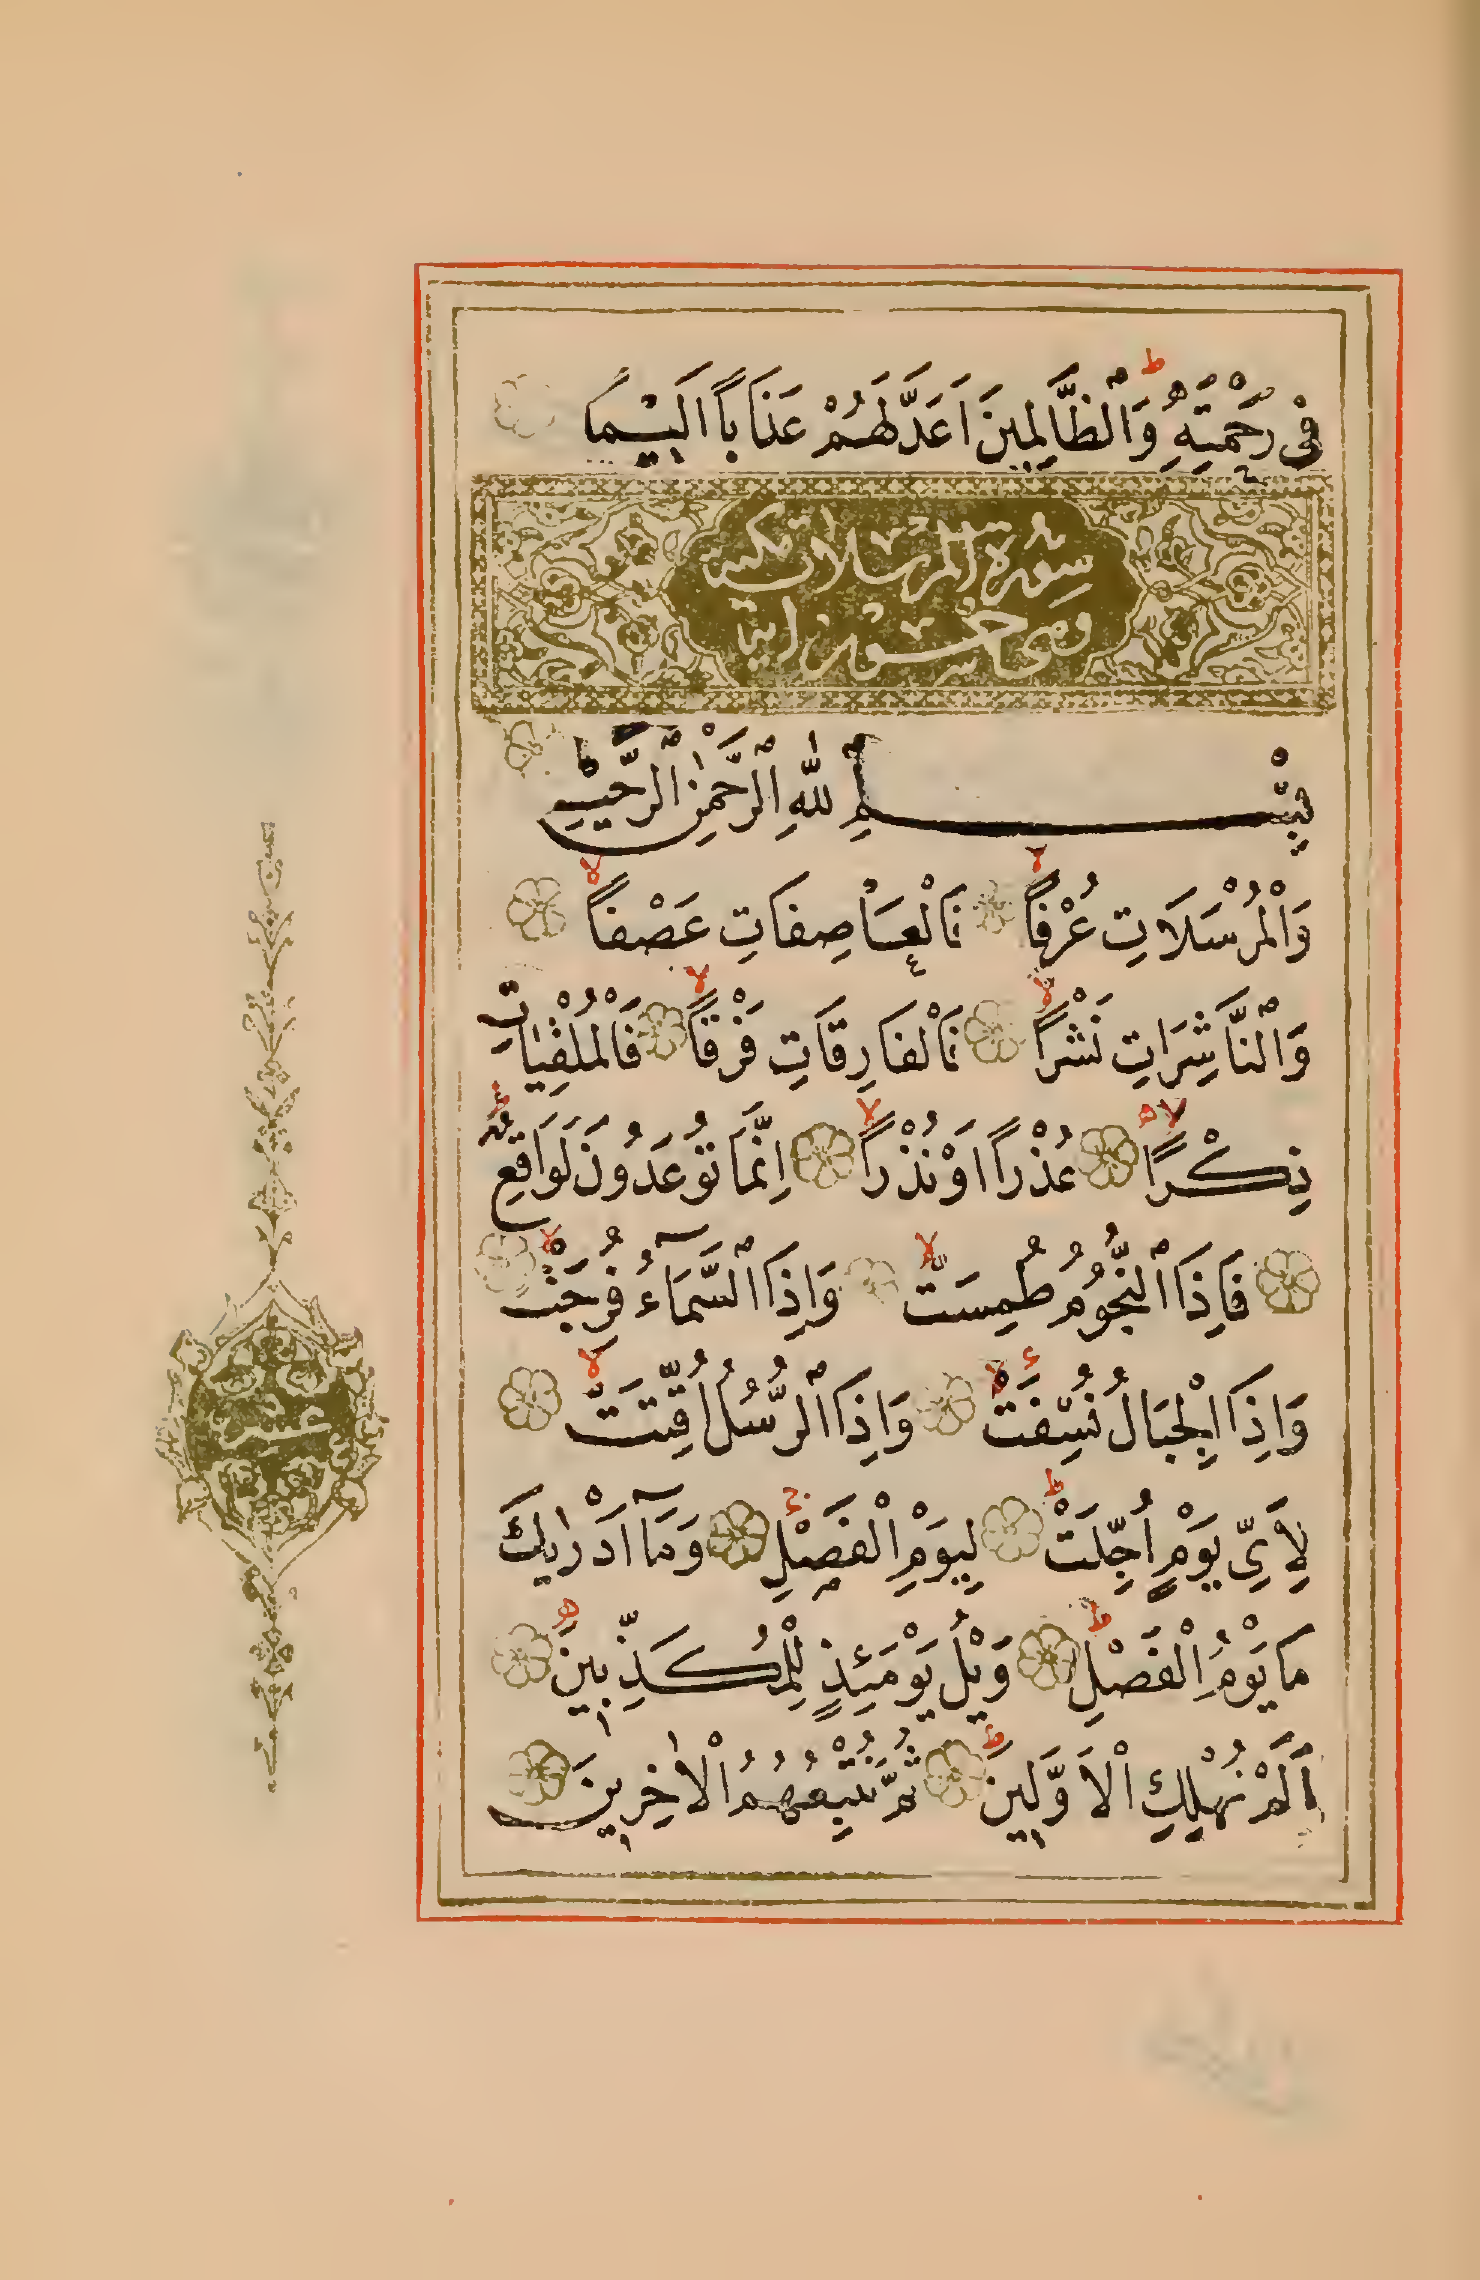 فِي رَحْمَتِهِ وَالظَّالِمِينَ اَعَدَّ لَهُمْ عَذَاباً اَلِيماً
سورة المرسلات مكية
وهي خمسون اية
بِسْمِ اللّٰهِ الرَّحْمٰنِ الرَّحِيمِ
وَالْمُرْسَلَاتِ عُرْفاً فَالْعَاصِفَاتِ عَصْفاً
وَالنَّاشِرَاتِ نَشْراً فَالْفَارِقَاتِ فَرْقاً فَالْمُلْقِيَاتِ
ذِكْراً عُذْراً اَوْ نُذْراً اِنَّمَا تُوعَدُونَ لَوَاقِعٌ
فَاِذَا النُّجُومُ طُمِسَتْ وَاِذَا السَّمَآءُ فُرِجَتْ
وَاِذَا الْجِبَالُ نُسِفَتْ وَاِذَا الرُّسُلُ اُقِّتَتْ
لِاَيِّ يَوْمٍ اُجِّلَتْ لِيَوْمِ الْفَصْلِ وَمَآ اَدْرٰيكَ
مَا يَوْمُ الْفَصْلِ وَيْلٌ يَوْمَئِذٍ لِلْمُكَذِّبِينَ
اَلَمْ نُهْلِكِ الْاَوَّلِينَ ثُمَّ نُتْبِعُهُمُ الْاٰخِرِينَ